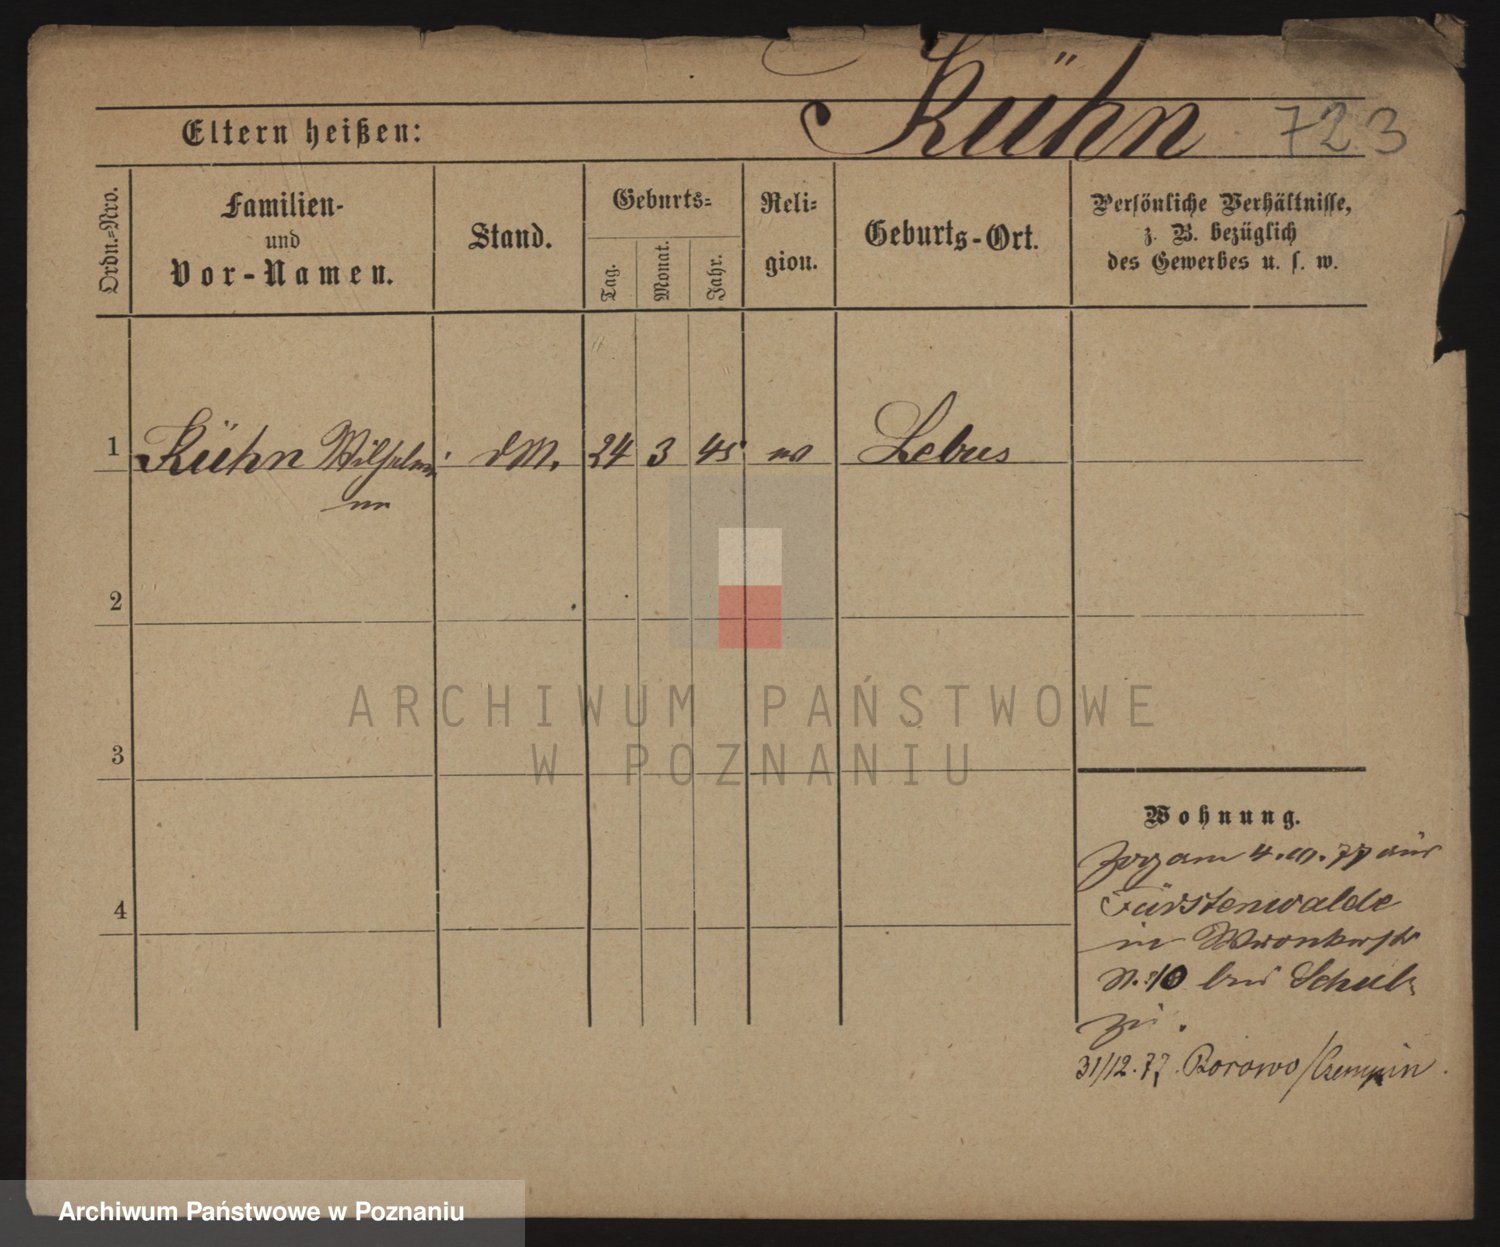 Kühn 723
Eltern heißen:
Ordn.-Nro.
Familien-
und
Vor-Namen.
Stand.
Geburts-
Tag.
Monat.
Jahr.
Reli-
gion.
Geburts-Ort.
Persönliche Verhältnisse,
z. B. bezüglich
des Gewerbes u. s. w.
1 Kühn 24 3 45 Lebus
2
3
4
ARCHIWUM PAŃSTWOWE
W POZNANIU
Wohnung.
am 4.10.77 aus
Fürstenwalde
in Wronkerstr
N. 10 bei Schulz
zu.
31/12.77. Borowo/Czempin.
Archiwum Państwowe w Poznaniu